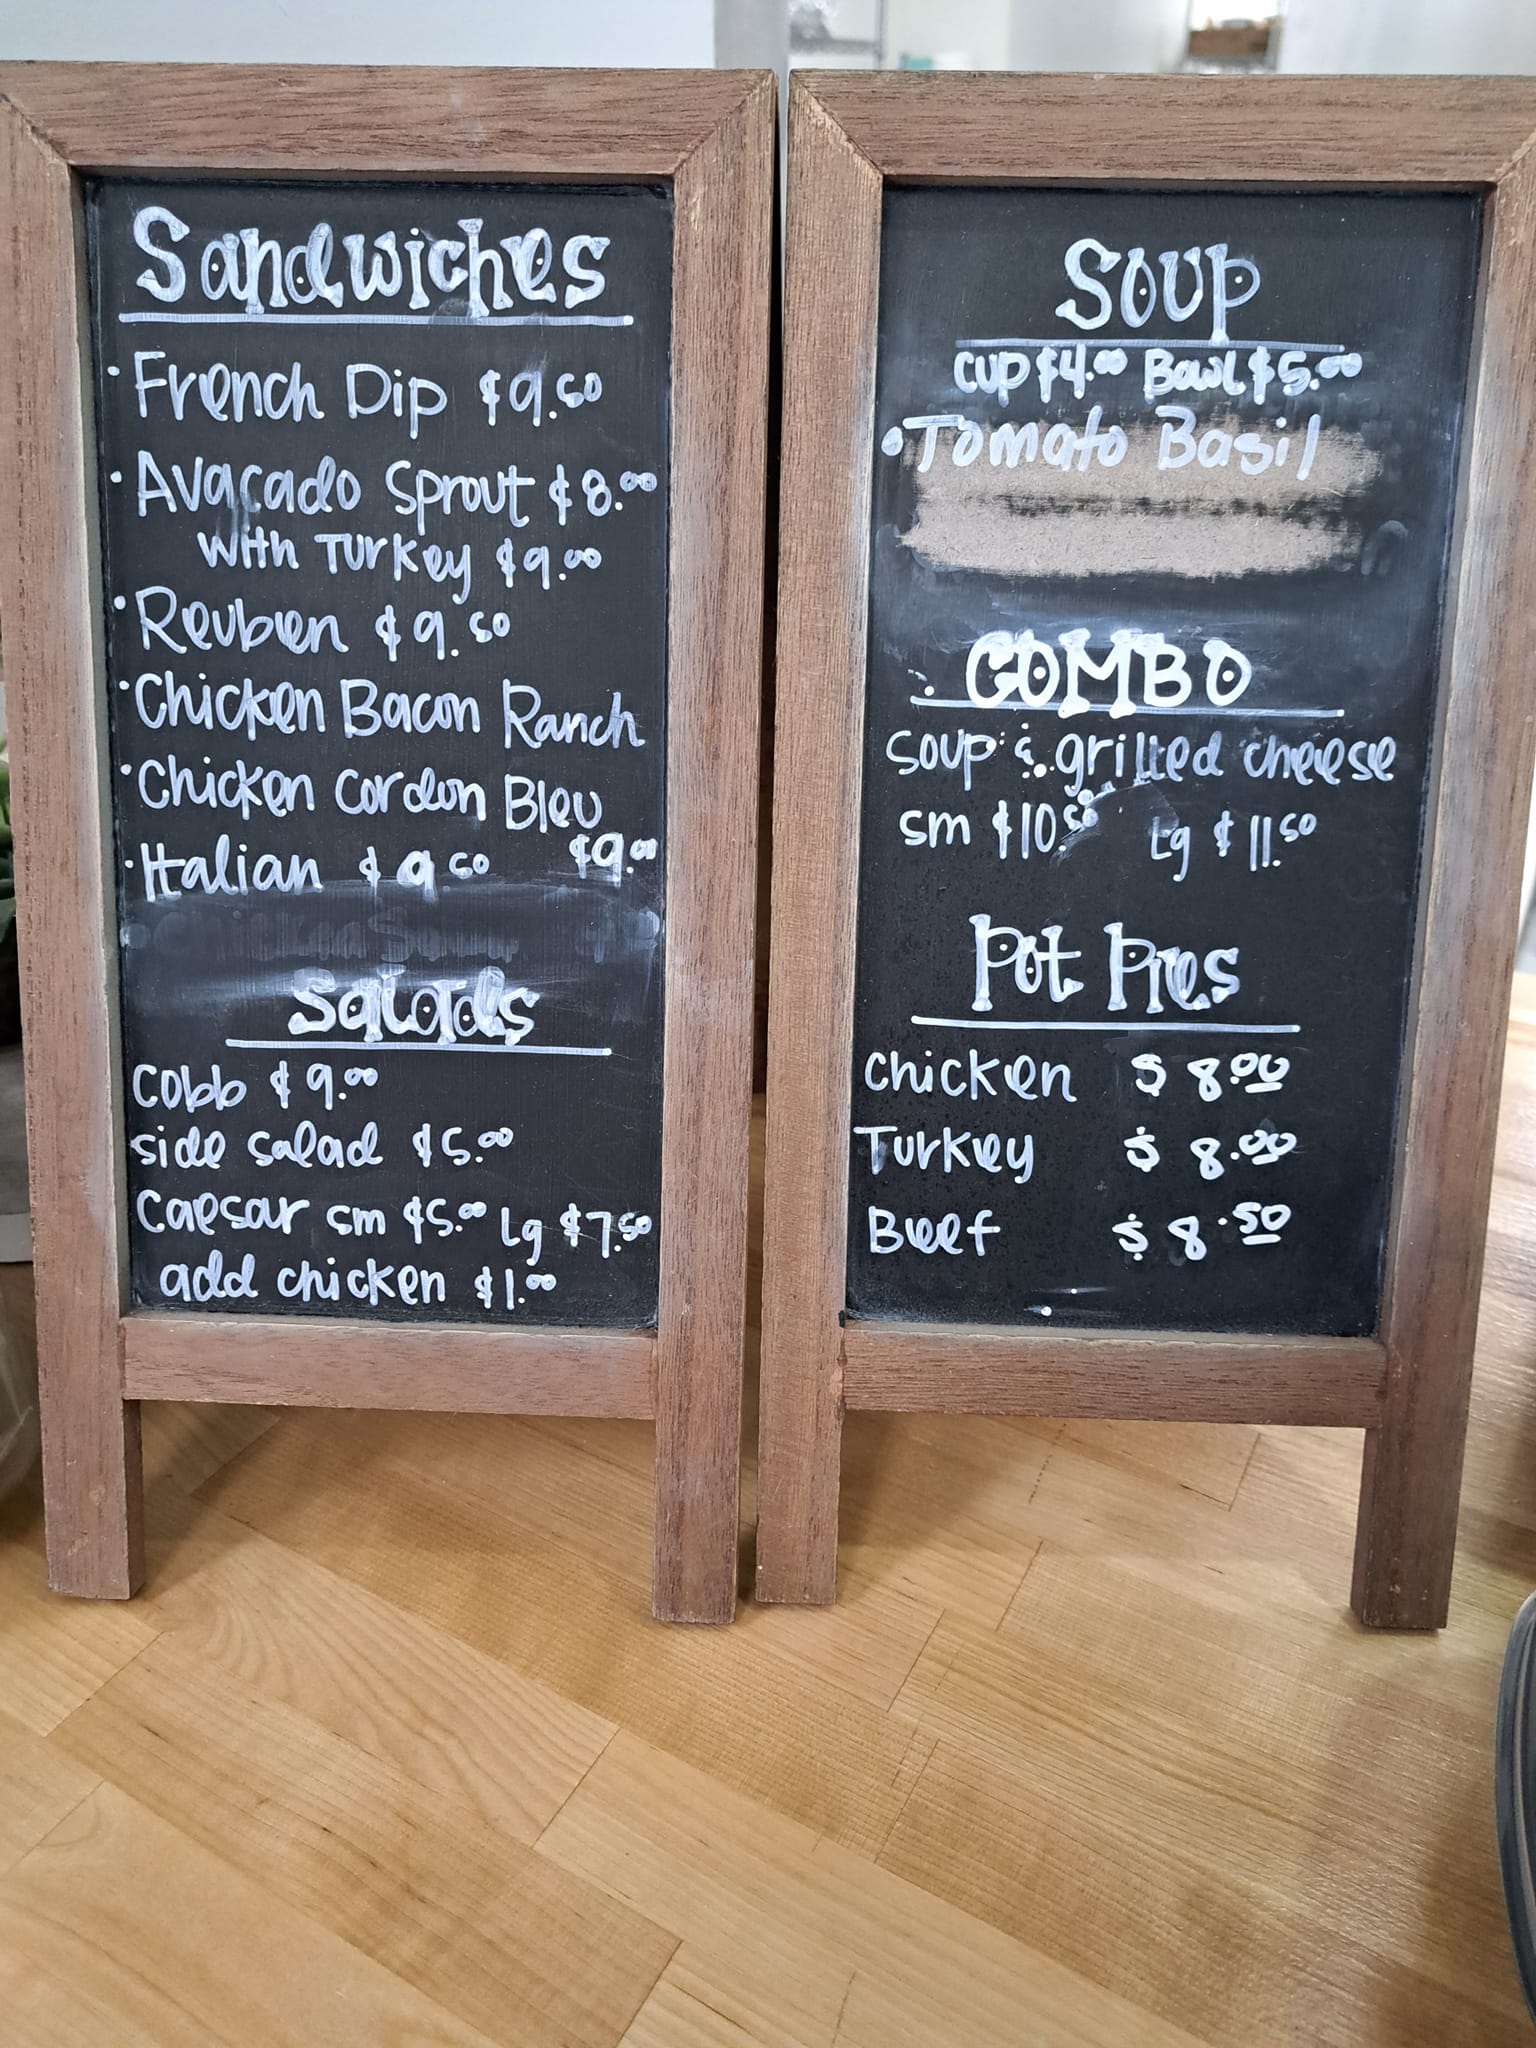 Sandwiches
• French Dip $9.50
• Avacado Sprout $8.00
with Turkey $9.00
• Reuben $9.50
• Chicken Bacon Ranch
• Chicken Cordon Bleu
$9.00
• Italian $9.50
Salads
Cobb $9.00
side salad $5.00
Caesar sm $5.00 Lg $7.50
add chicken $1.00
Soup
Cup $4.00 Bowl $5.00
• Tomato Basil
COMBO
Soup & grilled cheese
sm $10.50 Lg $11.50
Pot Pies
Chicken $8.00
Turkey $8.00
Beef $8.50